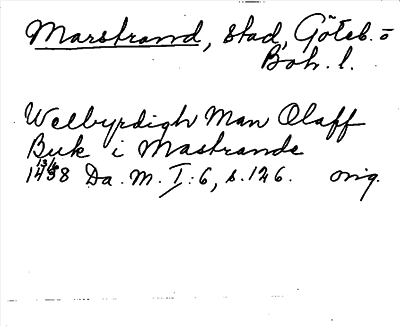 Marstrand, stad, Göteb. o
Boh. l.
Welbyrdigh Man Olaff
Buk i Mastrande
13/6
1438 Da. M. I: 6, s. 126. orig.